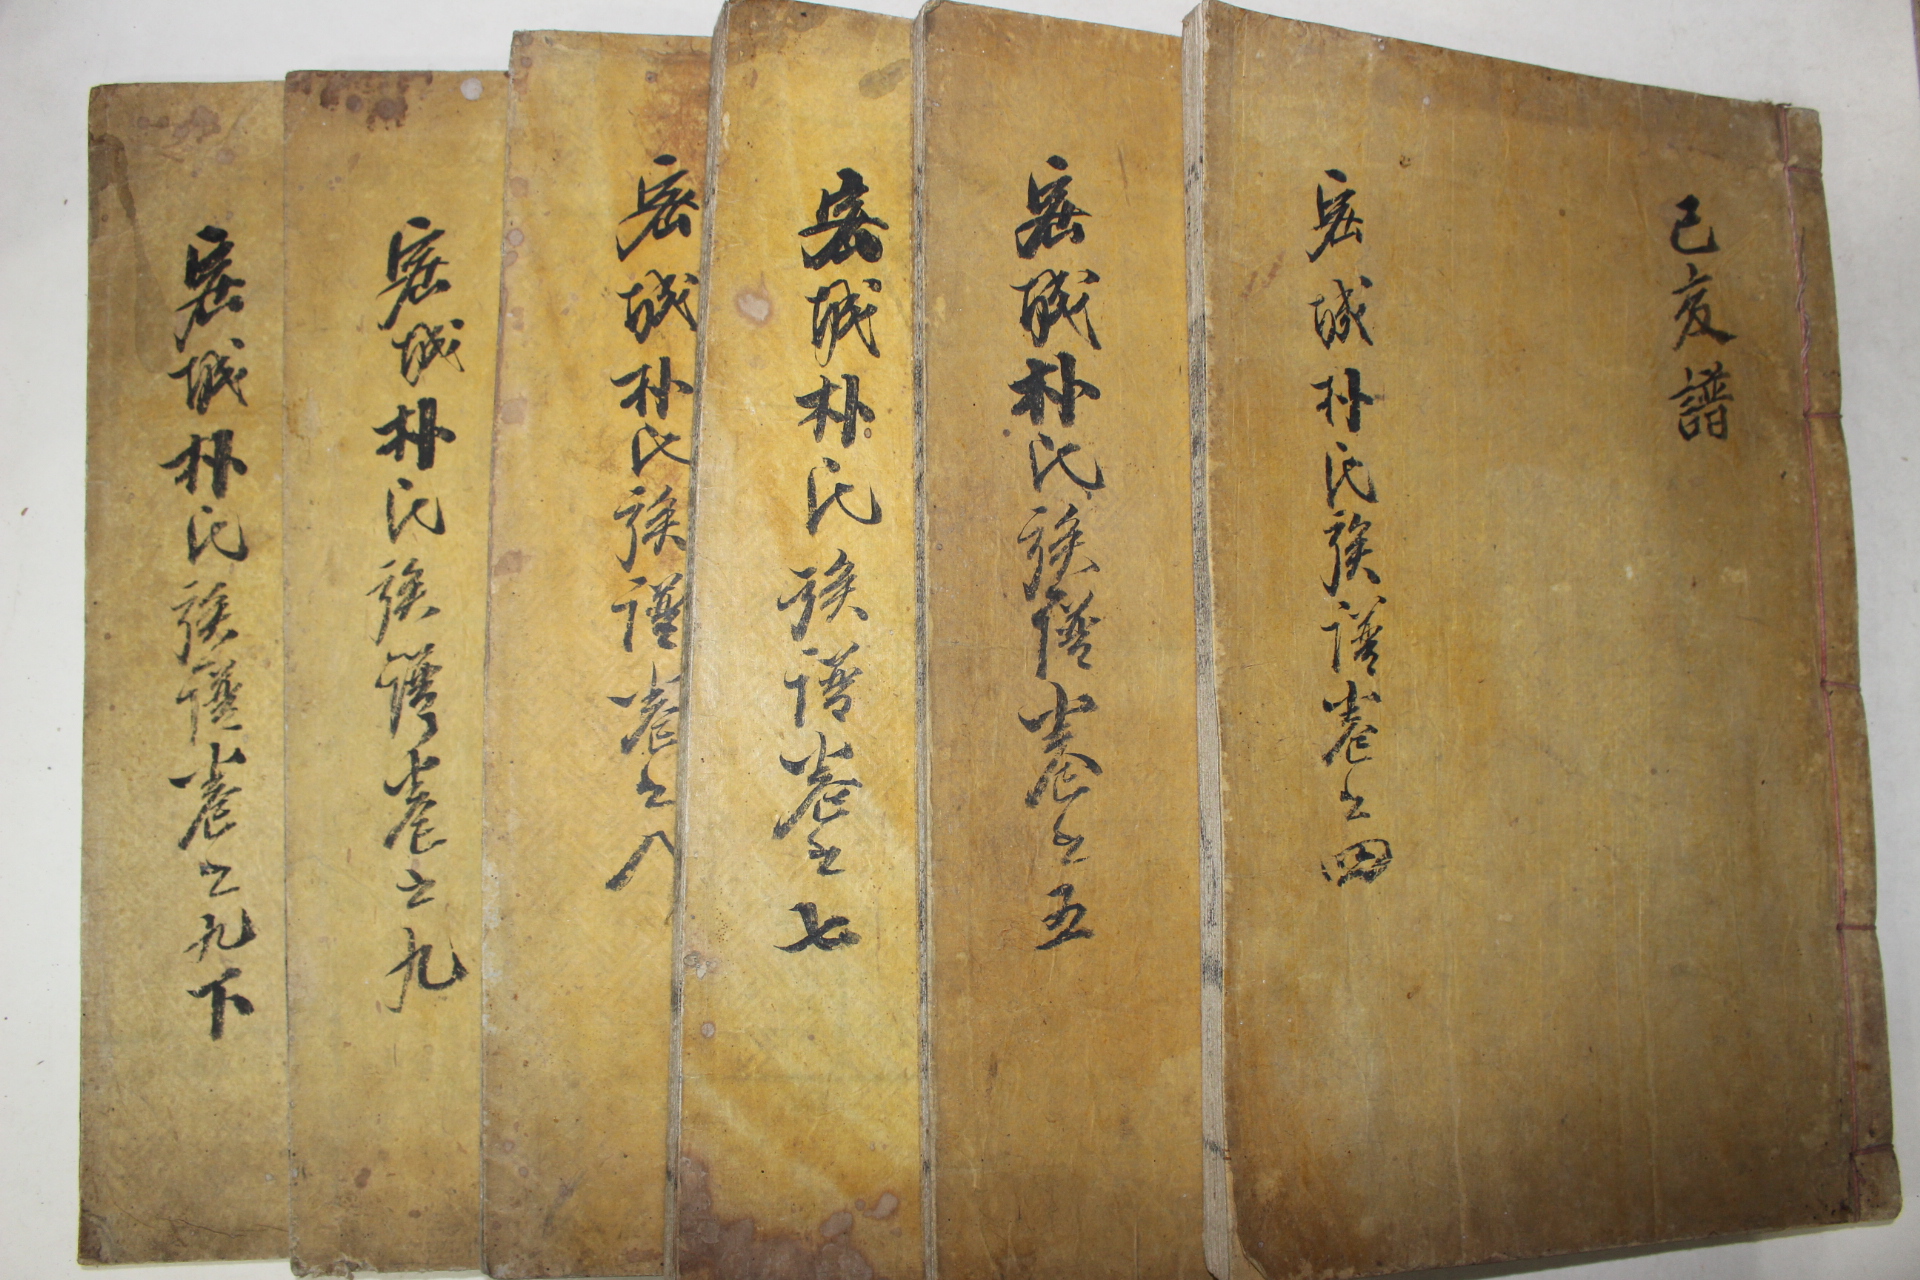 己亥譜
密城朴氏族譜卷之四
密城朴氏族譜卷之五
密城朴氏族譜卷之七
密城朴氏族譜卷之八
密城朴氏族譜卷之九
密城朴氏族譜卷之九下